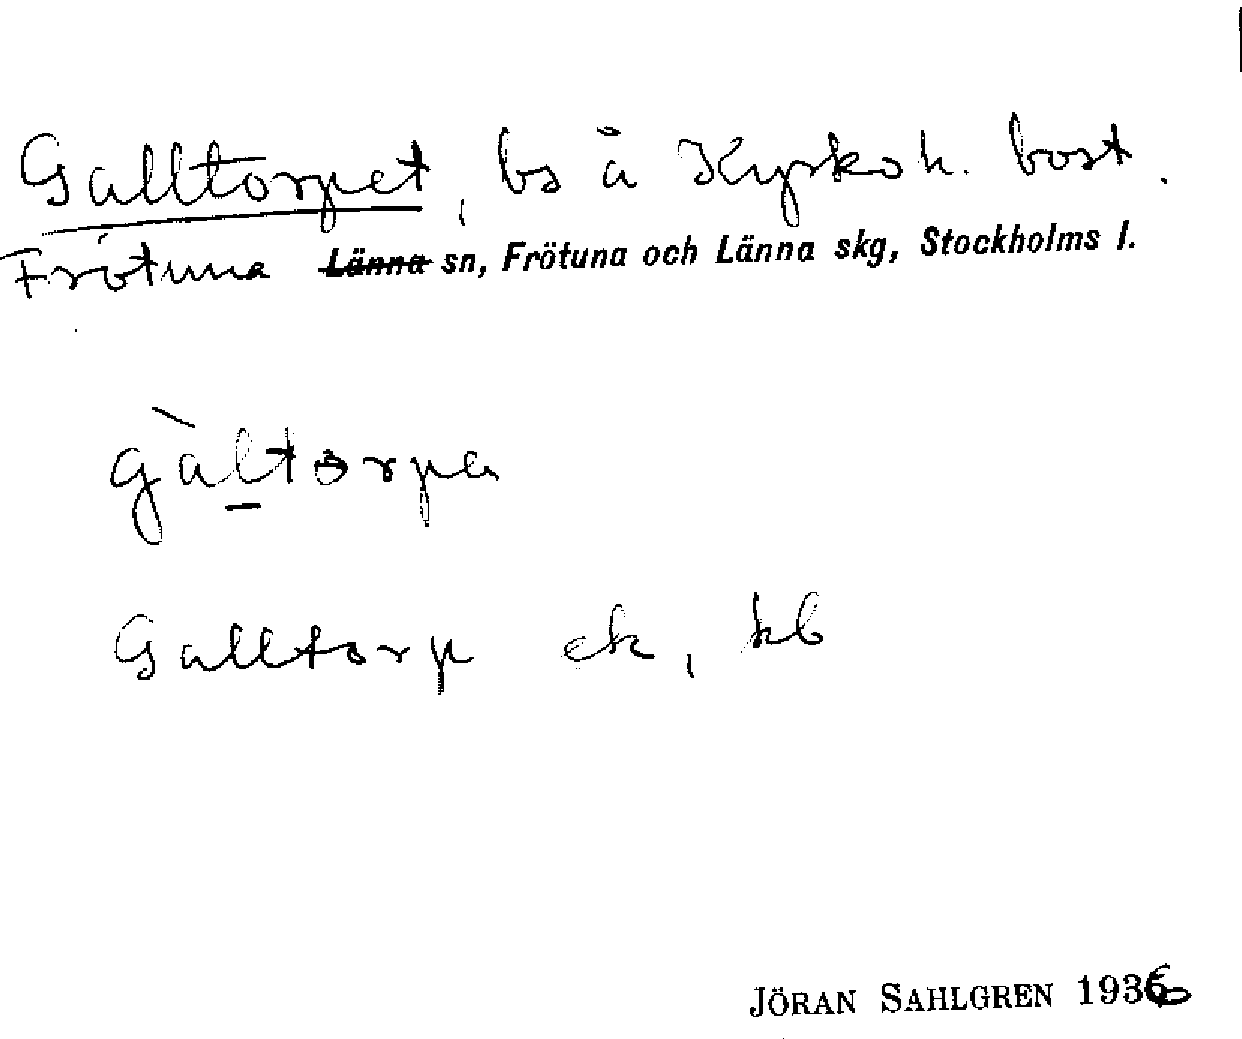 Galltorpet, bs å Kyrkoh. bost.
Frötuna Länna sn, Frötuna och Länna skg, Stockholms l.
gàltorpa
Galltorp ek, kb
JÖRAN SAHLGREN 1936